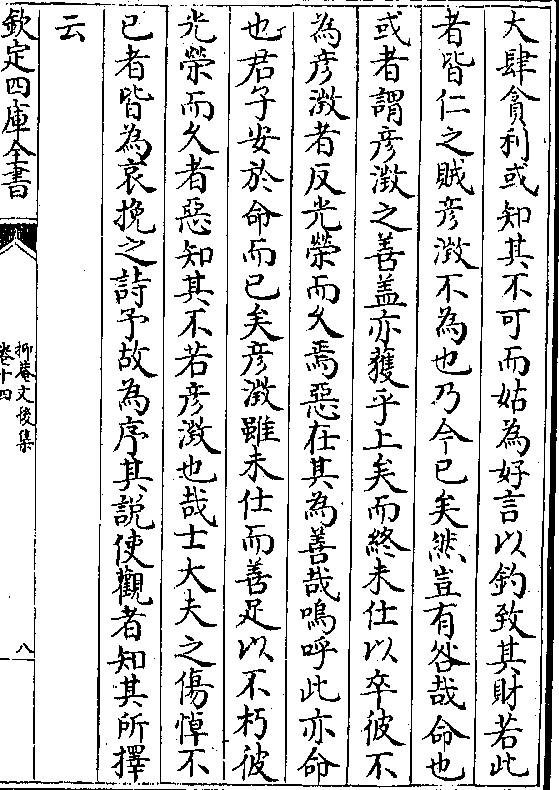 大肆貪利或知其不可而姑為好言以釣致其財若此
者皆仁之賊彦澂不為也乃今已矣然豈有咎哉命也
或者謂彦澂之善盖亦獲乎上矣而終未仕以卒彼不
為彦澂者反光榮而久焉惡在其為善哉嗚呼此亦命
也君子安於命而已矣彦澂雖未仕而善足以不朽彼
光榮而久者惡知其不若彦澂也哉士大夫之傷悼不
已者皆為哀挽之詩予故為序其說使觀者知其所擇
云
欽定四庫全書
抑菴文後集
卷十四
八